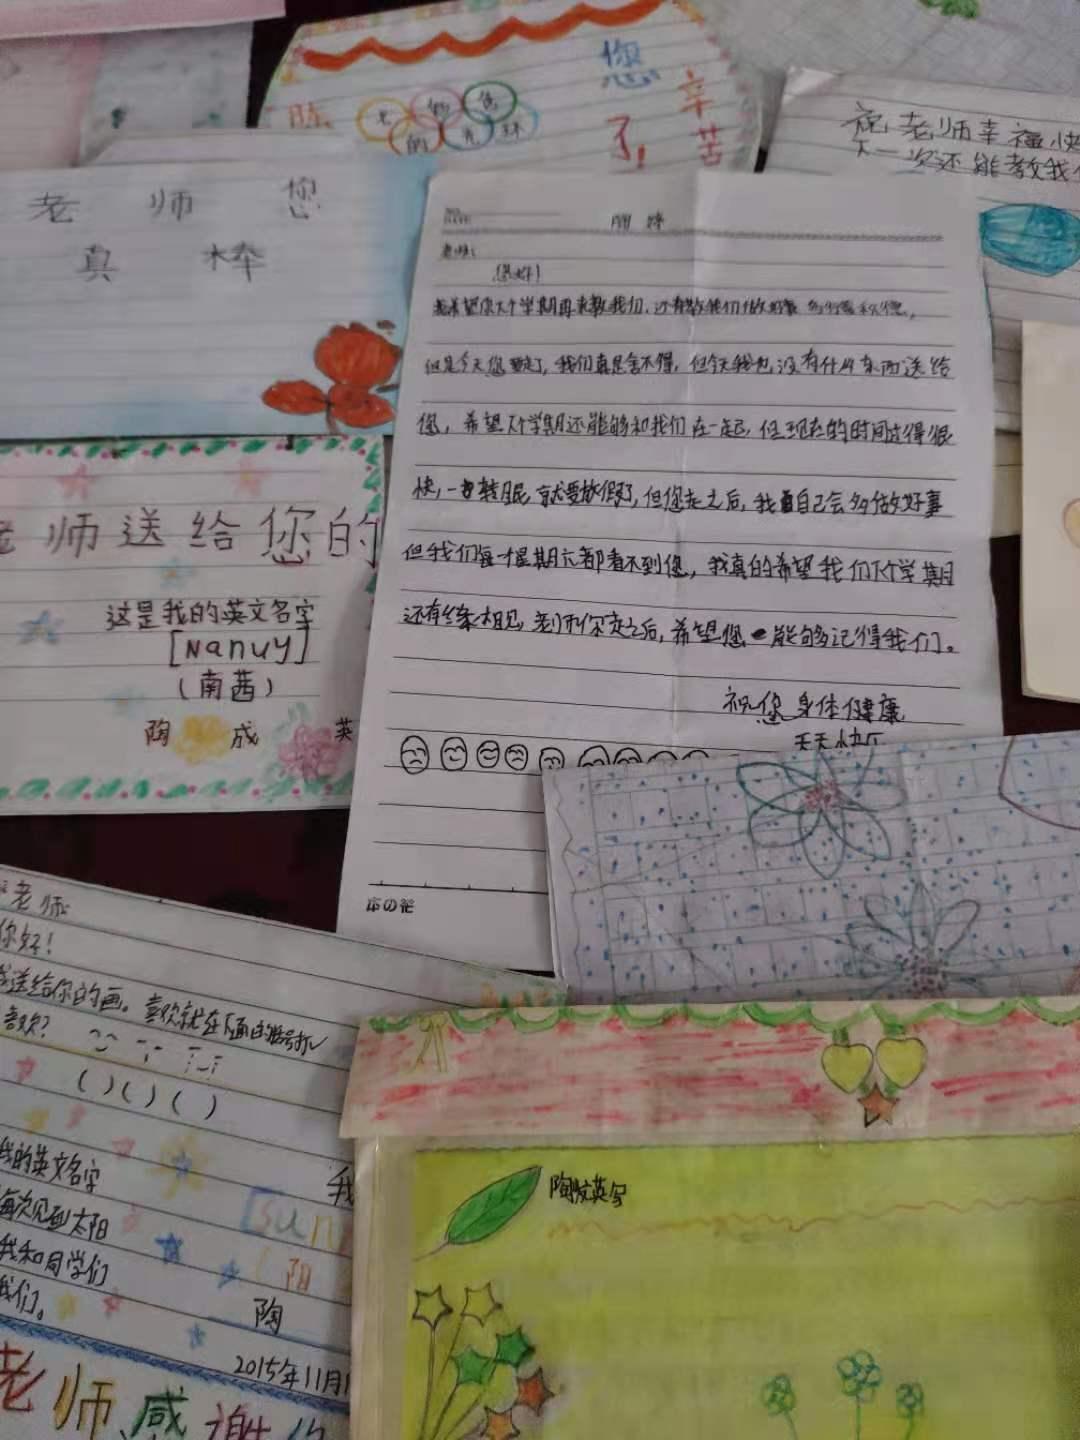 您
辛苦
了!
的
祝老师幸福快
下一次还能教我
老师您
真棒
老师:
您好!
我希望你下个学期再来教我们,还有教我们做好事
但是今天您要走了,我们真是舍不得,但今天我也没有什么东西送给
您,希望下个学期还能够和我们在一起,但现在的时间过得很
快,一转眼就要放假了,但您走之后,我自己会多做好事
但我们每个星期六都看不到您,我真的希望我们下个学期
还有缘相见,老师你走之后,希望您能够记得我们。
祝您身体健康
天天快
本の花
师送给您的
这是我的英文名字
[Nanuy]
(南茜)
陶成英
老师
你好!
我送给你的画。喜欢就在下面的括号打√
喜欢?
( ) ( ) ( )
我的英文名字
每次见到太阳
我和同学们
我们。
我
[Sun
(阳
陶
2015年11月1
老师感谢